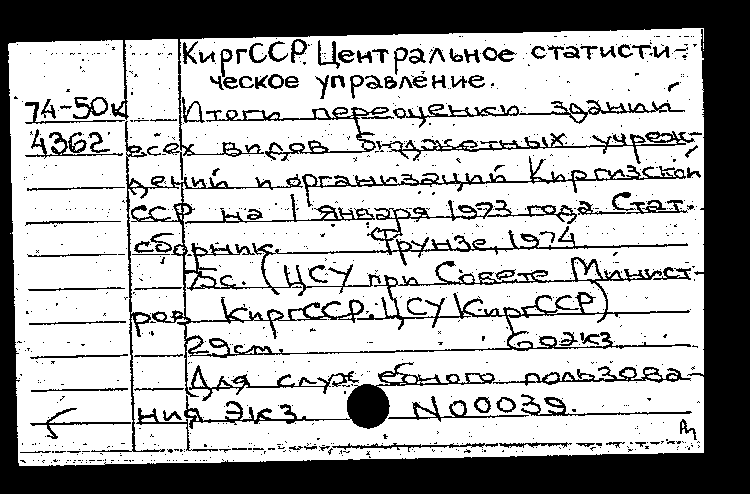 КиргССР. Центральное статисти-
ческое управление.
74-50к Итоги переоценки зданий
4362 всех видов бюджетных учреж-
дений и организаций Киргизской
ССР на 1 января 1973 года. Стат.
сборник. Фрунзе, 1974.
75с. (ЦСУ при Совете Минист-
ров КиргССР. ЦСУ КиргССР).
29см. 60экз.
Для служебного пользова-
ния. Экз. N00039.